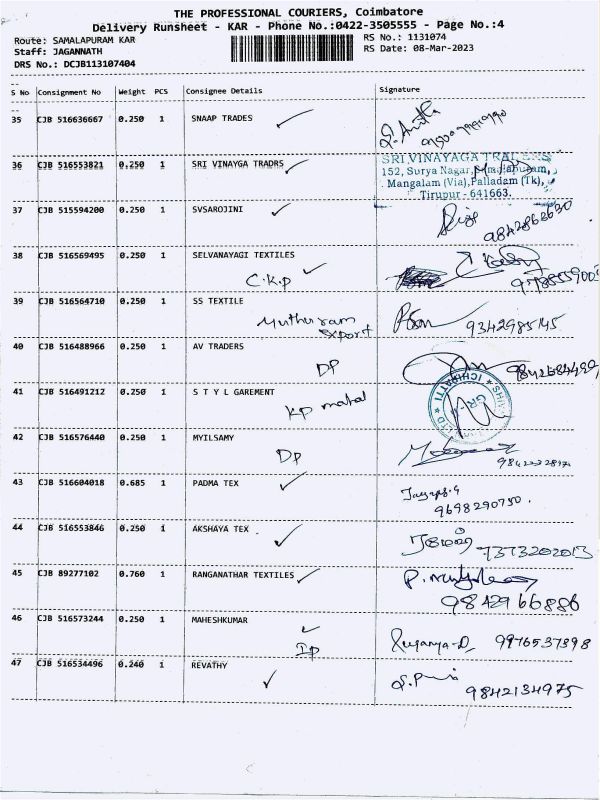 THE PROFESSIONAL COURIERS, Coimbatore
Delivery Runsheet - KAR - Phone No.:0422-3505555 - Page No.:4
Route: SAMALAPURAM KAR RS No.: 1131074
Staff: JAGANNATH RS Date: 08-Mar-2023
DRS No.: DCJB113107404
S No Consignment No Weight PCS Consignee Details Signature
35 CJB 516636667 0.250 1 SNAAP TRADES
36 CJB 516553821 0.250 1 SRI VINAYGA TRADRS
SRI VINAYAGA TRADERS
152, Surya Nagar,
Mangalam (Via), Palladam (Tk),
Tirupur - 641663.
37 CJB 515594200 0.250 1 SVSAROJINI
38 CJB 516569495 0.250 1 SELVANAYAGI TEXTILES
C.K.P
39 CJB 516564710 0.250 1 SS TEXTILE
Muthuram
Export 9342985145
40 CJB 516488966 0.250 1 AV TRADERS
DP
41 CJB 516491212 0.250 1 S T Y L GAREMENT
KP mahal
42 CJB 516576440 0.250 1 MYILSAMY
DP
43 CJB 516604018 0.685 1 PADMA TEX
9698290750.
44 CJB 516553846 0.250 1 AKSHAYA TEX
7373202013
45 CJB 89277102 0.760 1 RANGANATHAR TEXTILES
9842966886
46 CJB 516573244 0.250 1 MAHESHKUMAR
9976537398
47 CJB 516534496 0.240 1 REVATHY
9842134975